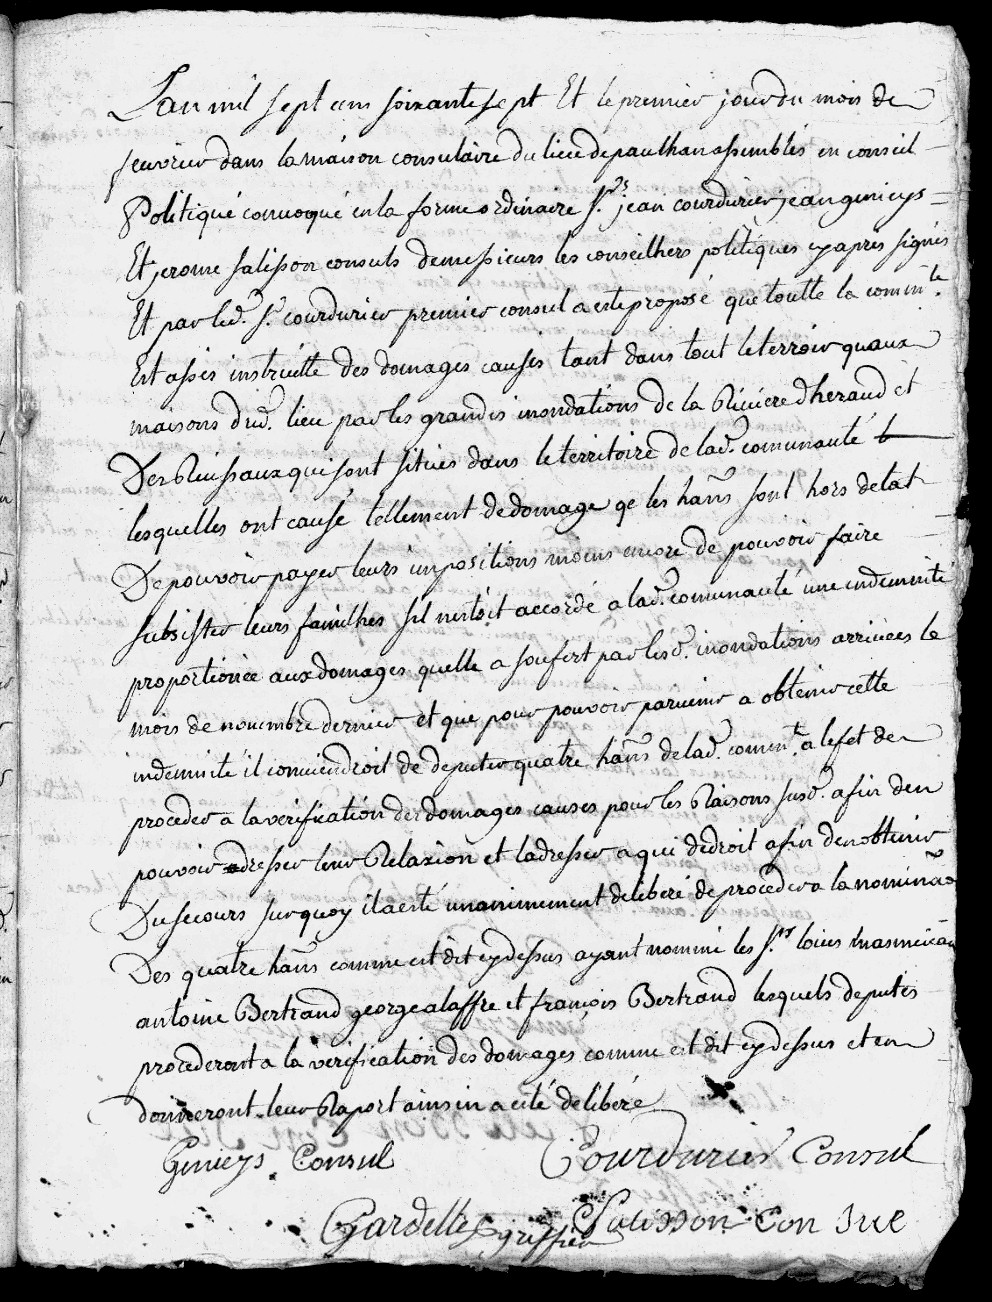 Lan mil sept cens soixante sept Et le premier jour du mois de
feuvrier dans la maison consulaire du lieu de paulhan assemblés en conseil
Politique convoqué en la forme ordinaire Srs. jean courdurier jean genieys
Et jerome salisson consuls de messieurs les conseilhers politiques cy apres signés
Et par led. Sr. courdurier premier consul a esté proposé que toutte la commte.
Est assés instruitte des domages causés tant dans tout le terroir quaux
maisons dud. lieu par les grandes inondations de la Riviere dheraud et
Des Ruissaux qui sont situés dans le territoire de lad. comunauté
lesquelles ont causé tellement de domage qe les hans sont hors detat
De pouvoir payer leurs impositions moins encore de pouvoir faire
subsister leurs familhes sil nestoit accordé a lad. comunauté une indemnité
proportionée aux domages quelle a soufert par lesd. inondations arrivées le
mois de novembre dernier et que pour pouvoir parvenir a obtenir cette
indemnité il conviendroit de deputer quatre hans de lad. commt. a lefet de
proceder a la verification des domages causes pour les Raisons susd. afin den
pouvoir dresser leur Relaxion et ladresser a qui dedroit afin den obtenir
Du secours surquoy il a esté unanimement deliberé de proceder a la nominao
Des quatre hans comme est dit cy dessus ayant nommé les Srs louis
antoine Bertrand george alaffre et françois Bertrand lesquels deputés
procederont a la verification des domages comme est dit cy dessus et en
donneront leur Raport ainsin a esté deliberé
Genieys Consul Courdurier Consul
Gardelle greffier Salisson Con sul